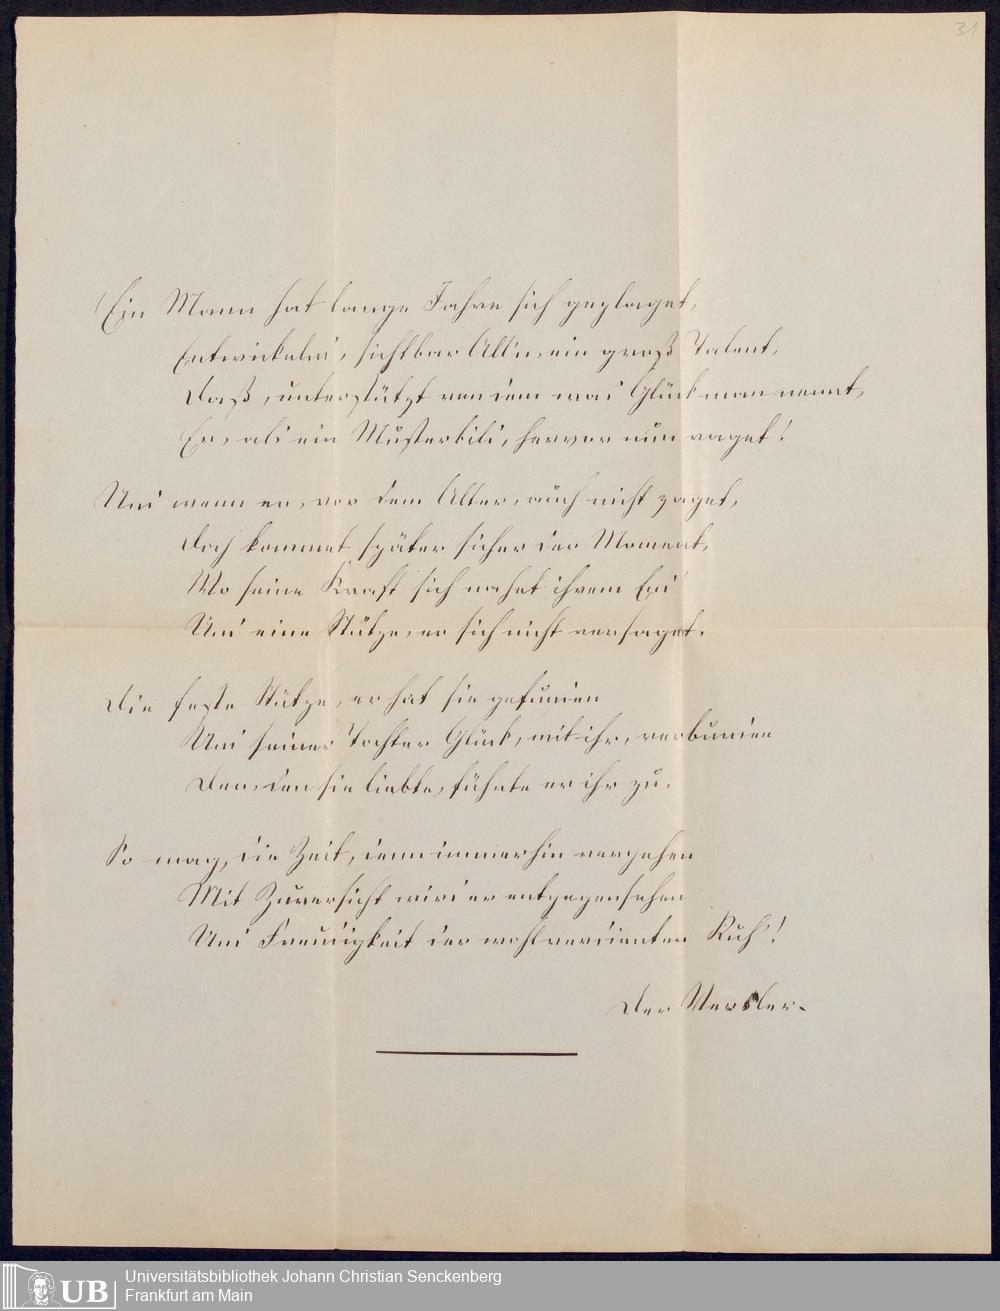 31
Ein Mann hat lange Jahre sich geplaget,
Entwickelnd, sichtbar All'n, ein groß Talent,
Daß, unterstützt von dem was Glück man nennt,
Er, als ein Musterbild, hervor nun raget!
Und wenn er, vor dem Alter, auch nicht zaget,
Doch kommet später sicher der Moment,
Wo seine Kraft sich nahet ihrem End'
Und eine Stütze, er sich nicht versaget.
Die feste Stütze, er hat sie gefunden
Und seiner Tochter Glück, mit ihr, verbunden
Den, den sie liebte, führte er ihr zu.
So mag, die Zeit, denn immerhin vergehen
Mit Zuversicht wird er entgegensehen
Und Freudigkeit der wohlverdienten Ruh'!
Der
UB
Universitätsbibliothek Johann Christian Senckenberg
Frankfurt am Main